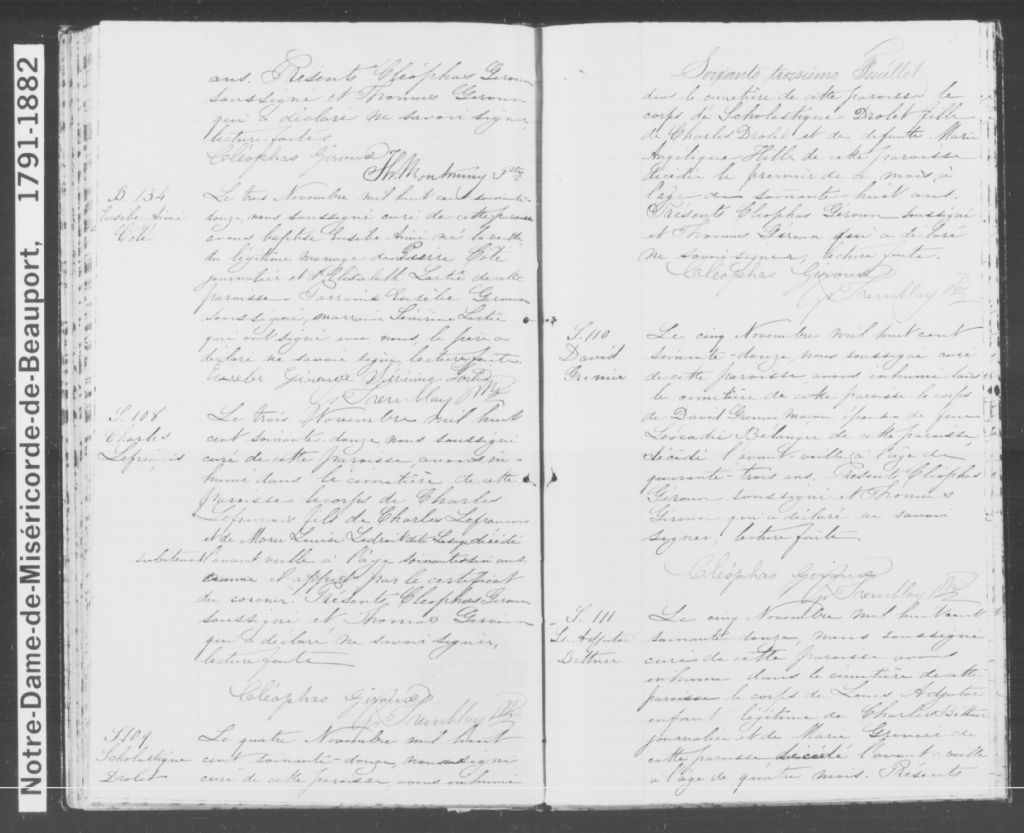 Notre-Dame-de-Miséricorde-de-Beauport, 1791-1882
ans. Présents Cléophas Giroux
soussigné et Thomas Giroux
qui a déclaré ne savoir signer,
lecture faite.
Cléophas Giroux
Th. Montminy Ptre
B 134
Eusèbe Aimé
Coté
Le trois Novembre mil huit cent soixante-
douze, nous soussigné curé de cette paroisse
avons baptisé Eusèbe Aimé né la veille
du légitime mariage de Pierre Coté
journalier et d'Elisabeth Lortie de cette
paroisse. Parrain Eusèbe Giroux
soussigné, marraine Séverine Lortie
qui ont signé avec nous, le père a
déclaré ne savoir signer, lecture faite.
Giroux Séverine Lortie
Tremblay Ptre
S. 108
Charles
Lefrançois
Le trois Novembre mil huit
cent soixante-douze nous soussigné
curé de cette paroisse avons in-
humé dans le cimetière de cette
paroisse le corps de Charles
Lefrancois fils de Charles Lefrancois
et de Marie Louise Ledroit décédé
subitement l'avant veille à l'âge soixante ans
comme il appert par le certificat
du coroner. Présents Cléophas Giroux
soussigné et Thomas Giroux
qui a déclaré ne savoir signer,
lecture faite
Cléophas Giroux
Tremblay Ptre
S 109
Scholastique
Drolet
Le quatre Novembre mil huit
cent soixante-douze, nous soussigné
curé de cette paroisse, avons inhumé
Soixante troisième Feuillet
dans le cimetière de cette paroisse le
corps de Scholastique Drolet fille
de Charles Drolet et de defunte Marie
Angélique Hill de cette paroisse
décédée le premier de ce mois, à
l'âge de soixante huit ans.
Présents Cléophas Giroux soussigné
et Thomas Giroux qui a déclaré
ne savoir signer, lecture faite.
Cléophas Giroux
Tremblay Ptre
S. 110
David
Grenier
Le cinq Novembre mil huit cent
soixante-douze, nous soussigné curé
de cette paroisse avons inhumé dans
le cimetière de cette paroisse le corps
de David Grenier maçon époux de feue
Léocadie Bélanger de cette paroisse,
décédé l'avant-veille à l'age de
quarante-trois ans. Présents Cléophas
Giroux soussigné et Thomas
Giroux qui a déclaré ne savoir
signer, lecture faite.
Cléophas Giroux
Tremblay Ptre
S. 111
Ls. Adjutor
Bettner
Le cinq Novembre mil huit cent
soixante douze, nous soussigné
curé de cette paroisse avons
inhumé dans le cimetière de cette
paroisse le corps de Louis Adjutor
enfant légitime de Charles Bettner
journalier et de Marie Grenier de
cette paroisse, décédé l'avant-veille
à l'âge de quatre mois. Présents